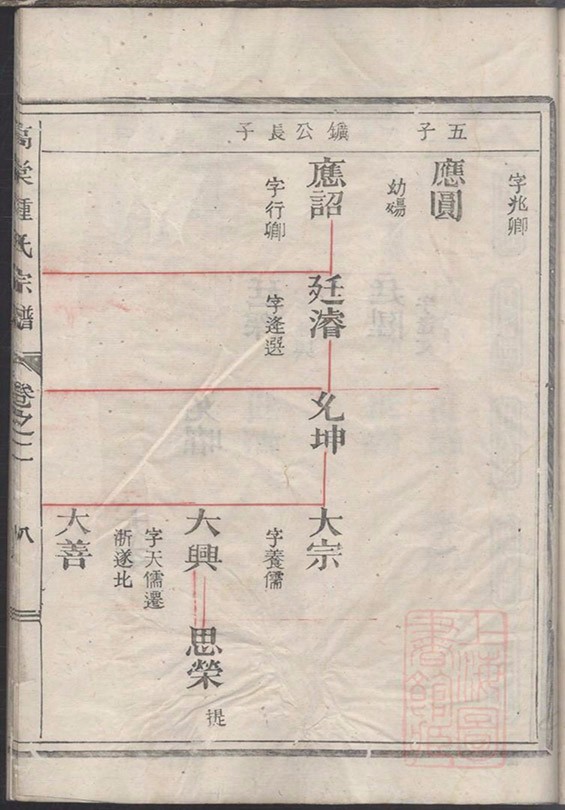 五子
鑛公長子
字兆卿
應圓
幼殤
應詔
字行卿
廷濬
字逢選
允坤
大宗
字養儒
大興
字天儒遷
浙遂北
思榮
提
大善
高棠鍾氏宗譜
卷之二
八